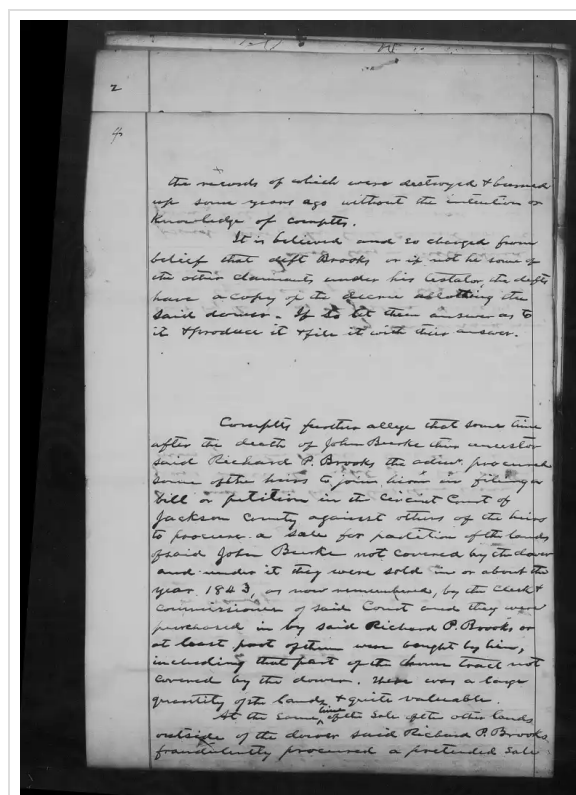 2
4
the records of which were destroyed & burned
up some years ago without the intention or
knowledge of complts.
It is believed and so charged from
belief that deft Brooks or if not he some of
the other claimants under his testator, the defts
have a copy of the decree allotting the
said dower. If so let them answer as to
it & produce it & file it with their answer.
Complts further allege that some time
after the death of John Burke their ancestor
said Richard P. Brooks the admr. procured
some of the heirs to join him in filing a
bill or petition in the Circuit Court of
Jackson County against others of the heirs
to procure a sale for partition of the lands
of said John Burke not covered by the dower
and under it they were sold in or about the
year 1843, as now remembered, by the Clerk &
Commissioner of said Court and they were
purchased in by said Richard P. Brooks or
at least part of them were bought by him,
including that part of the home tract not
covered by the dower. There was a large
quantity of the lands & quite valuable.
At the same time of the sale of the other lands
outside of the dower said Richard P. Brooks
fraudulently procured a pretended sale